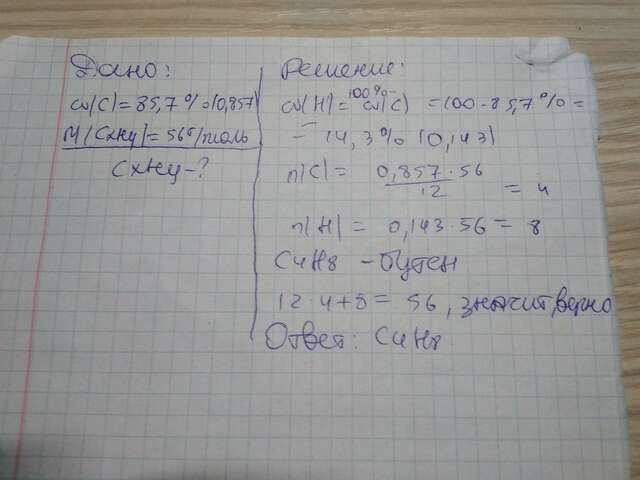 Дано:
w(C)=85,7% (0,857)
M(CxHy)=56г/моль
CxHy-?
Решение:
w(H)=100%-w(C) =100-85,7%=
=14,3% (0,143)
n(C)= 0,857·56/12 = 4
n(H)= 0,143·56= 8
C4H8 - бутен
12·4+8= 56, значит, верно
Ответ: C4H8